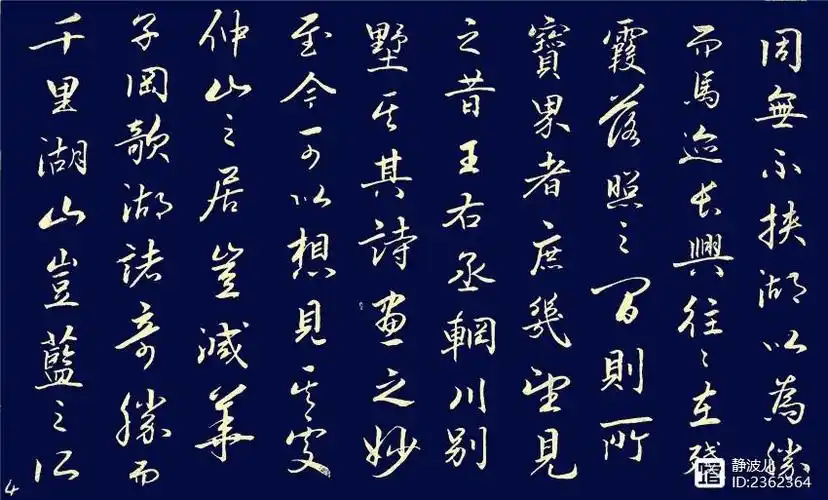 周無不挾湖以為勝
而馬迹長興往々在殘
霞落照之間則所
寶界者庶幾望見
之昔王右丞輞川別
墅其其詩畫之妙
至今可以想見其處
仲山之居豈減華
子岡欹湖諸奇勝而
千里湖山豈藍之所
4
静波儿
ID:2362364